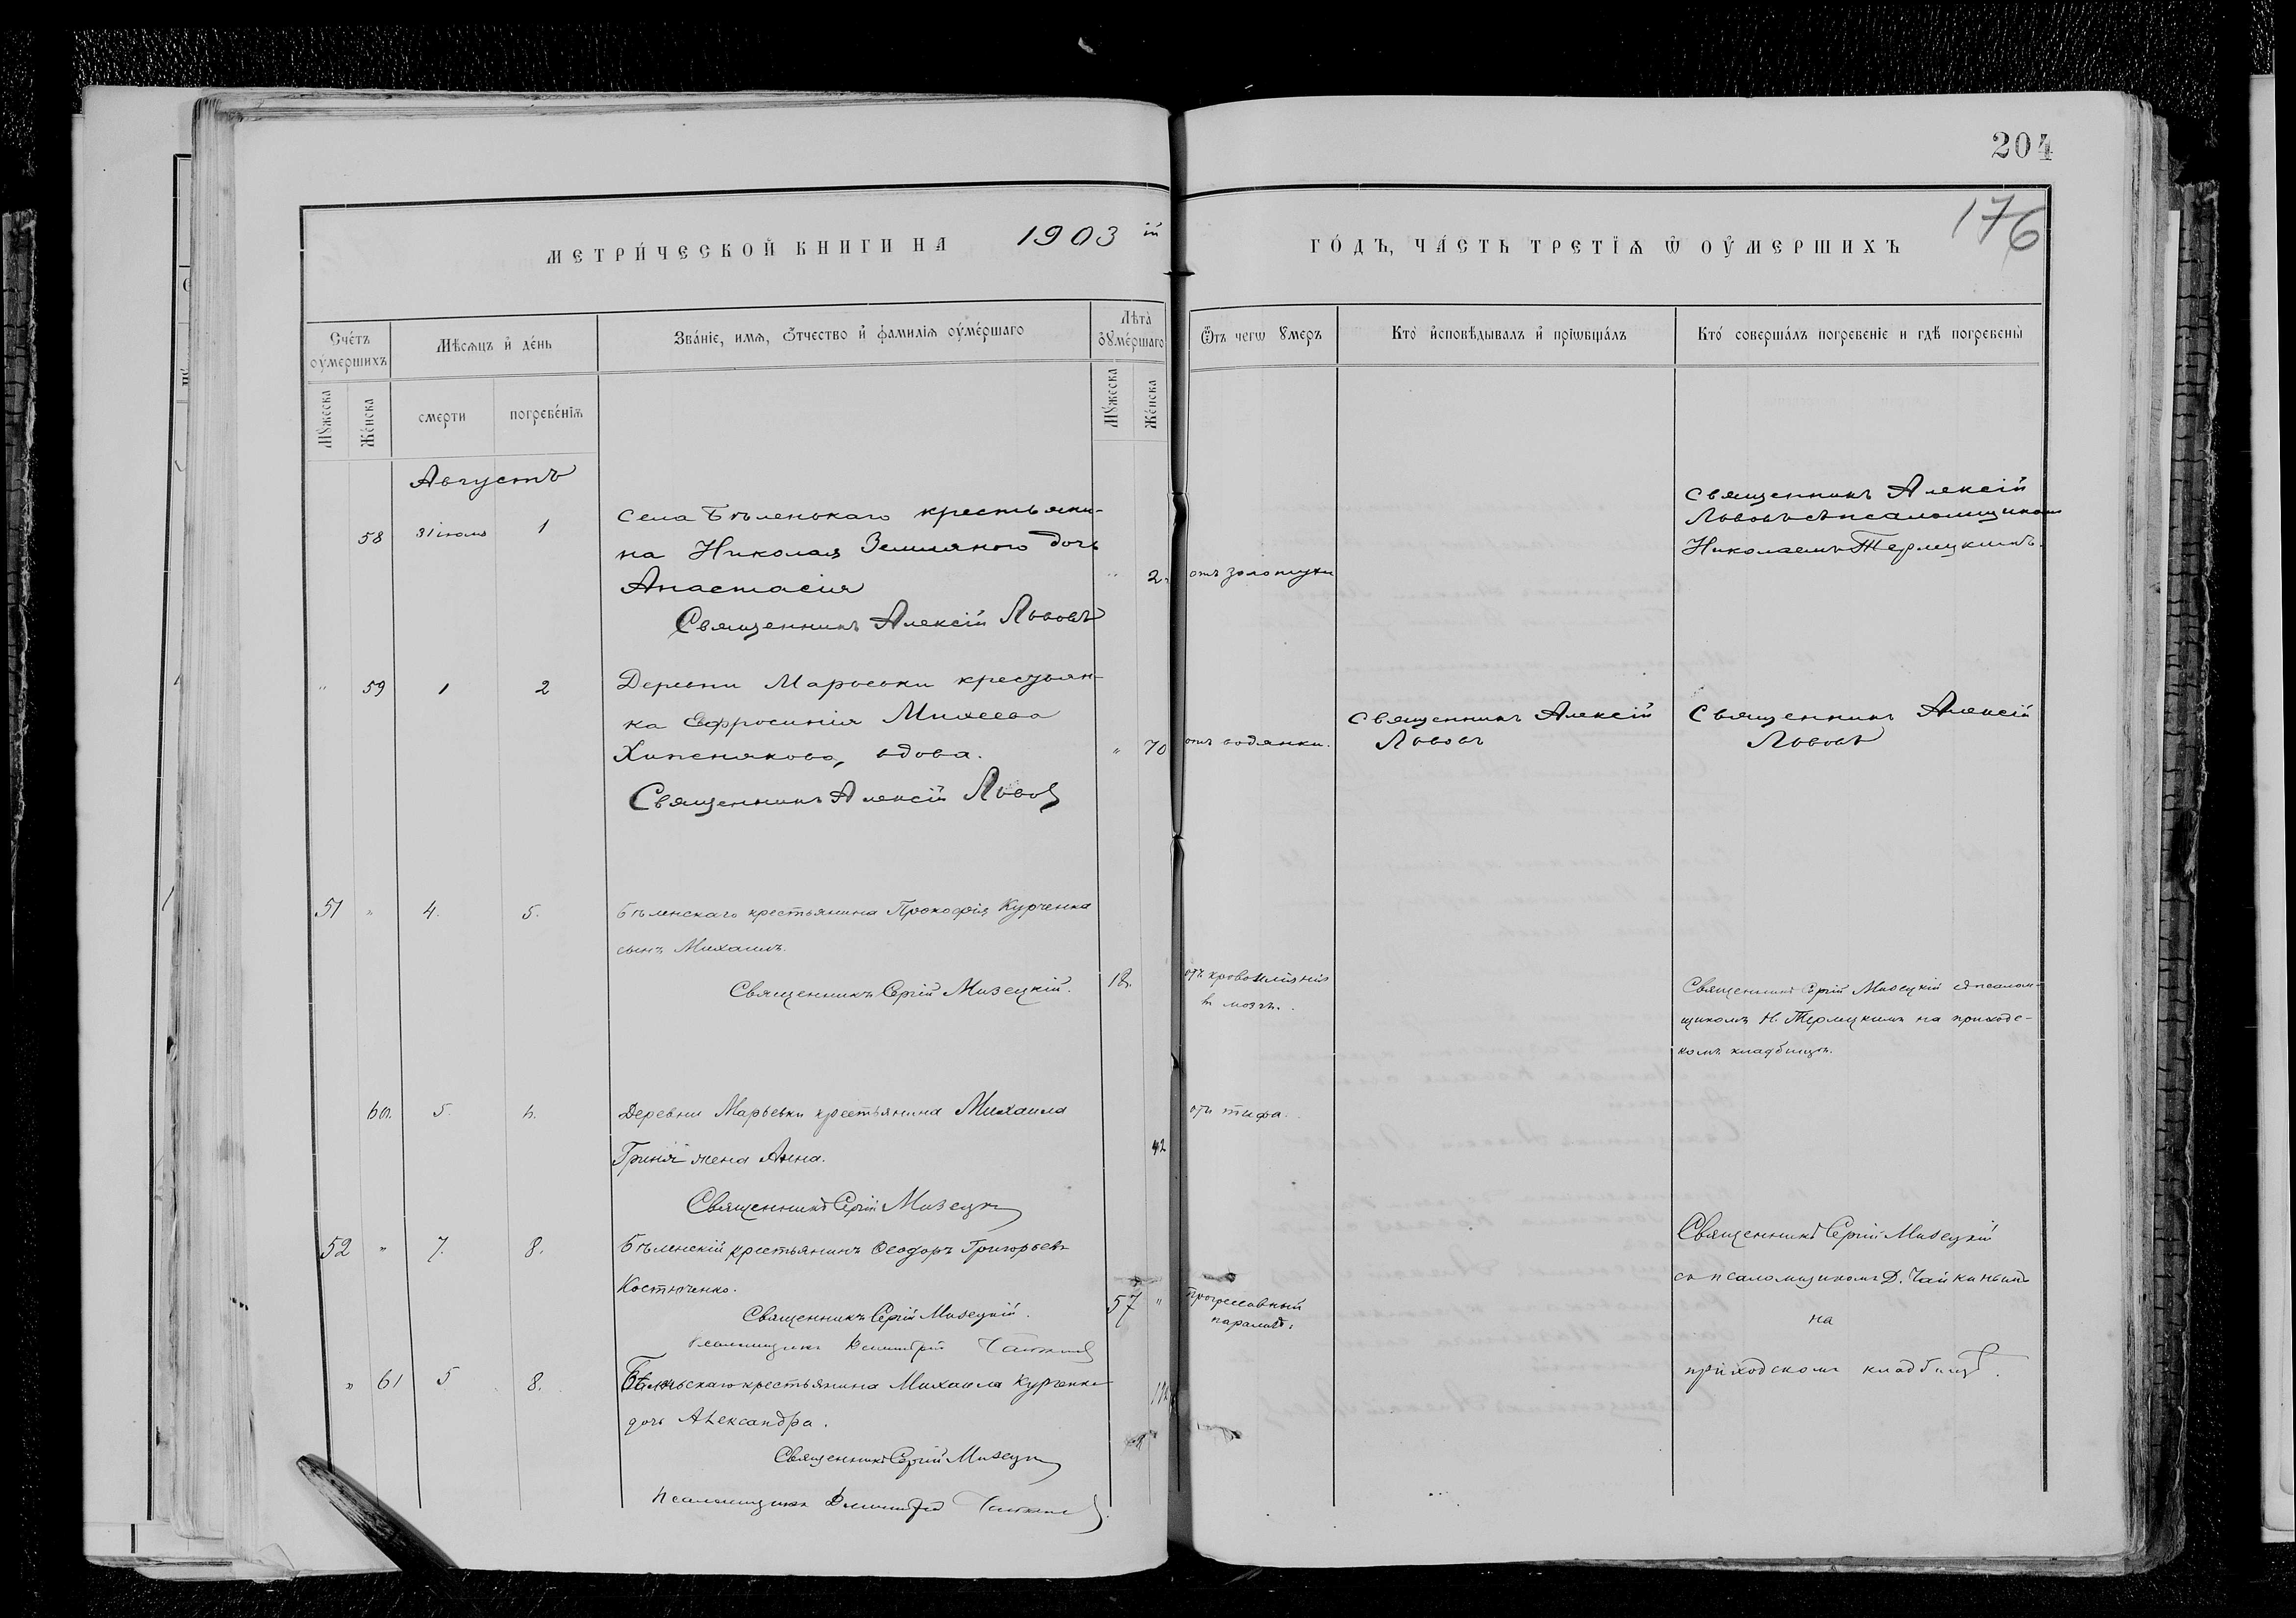 204
176
МЕТРИ́ЧЕСКОЙ КНИГИ НА 1903 ій
ГО́ДЪ, ЧА́СТЬ ТРЕТІѦ Ѡ ОУ҆МЕРШИХЪ
Сче́тъ оу҆мершихъ
Мѣсѧцъ и҆ де́нь
Зва́нїе, имѧ, ѻ҆тчество и҆ фамилїѧ оу҆ме́ршаго
Лѣта̀ ᲂу҆ме́ршаго
Ѿ чегѡ ᲂумеръ
Кто̀ и҆сповѣдывалъ и҆ прїѡбща́лъ
Кто́ совершалъ погребенїе и гдѣ погребены̀
Мꙋжеска
Же́нска
смерти
погребе́нїѧ
Мꙋжеска
Же́нска
Августъ
58
31 іюля
1
Села Бѣленькаго крестьяни-
на Николая Земляного дочь
Анастасія
Священникъ Алексій Львовъ
2
отъ золотухи
Священникъ Алексій
Львовъ съ псаломщикомъ
Николаемъ Терлецкимъ.
" 59
1
2
Деревни Марьевки крестьян-
ка Евфросинія Михеева
вдова.
Священникъ Алексій Львовъ
" 70
отъ водянки.
Священникъ Алексій
Львовъ
Священникъ Алексій
Львовъ
51 "
4.
5.
Бѣленскаго крестьянина Прокофія Курченка
сынъ Михаилъ.
Священникъ Сергій Мизецкій.
отъ кровоизліянія
въ мозгъ.
Священникъ Сергій Мизецкій съ псалом-
щикомъ Н. Терлецкимъ на приходс-
комъ кладбищѣ.
60.
5.
6.
Деревни Марьевки крестьянина Михаила
жена Анна.
Священникъ Сергій Мизецкій
42
отъ тифа.
52 "
7.
8.
Бѣленскій крестьянинъ Ѳеодоръ Григорьевъ
Костюченко.
Священникъ Сергій Мизецкій.
Псаломщикъ Димитрій Чайкинъ
57 "
Прогрессивный
параличъ.
Священникъ Сергій Мизецкій
съ псаломщикомъ Д. Чайкинымъ
на
приходскомъ кладбищѣ.
" 61
5
8.
Бѣленьскаго крестьянина Михаила Курченка
дочь Александра.
Священникъ Сергій Мизецкій
Псаломщикъ Димитрій Чайкинъ